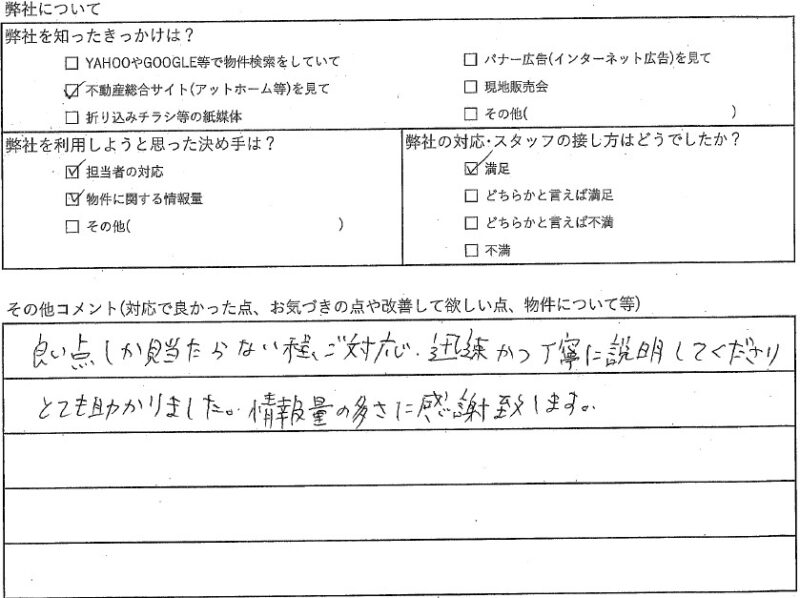 弊社について
弊社を知ったきっかけは？
□ YAHOOやGOOGLE等で物件検索をしていて
☑ 不動産総合サイト(アットホーム等)を見て
□ 折り込みチラシ等の紙媒体
□ バナー広告(インターネット広告)を見て
□ 現地販売会
□ その他( )
弊社を利用しようと思った決め手は？
☑ 担当者の対応
☑ 物件に関する情報量
□ その他( )
弊社の対応・スタッフの接し方はどうでしたか？
☑ 満足
□ どちらかと言えば満足
□ どちらかと言えば不満
□ 不満
その他コメント(対応で良かった点、お気づきの点や改善して欲しい点、物件について等)
良い点しか見当たらない程、ご対応・迅速かつ丁寧に説明してくださり
とても助かりました。情報量の多さに感謝致します。